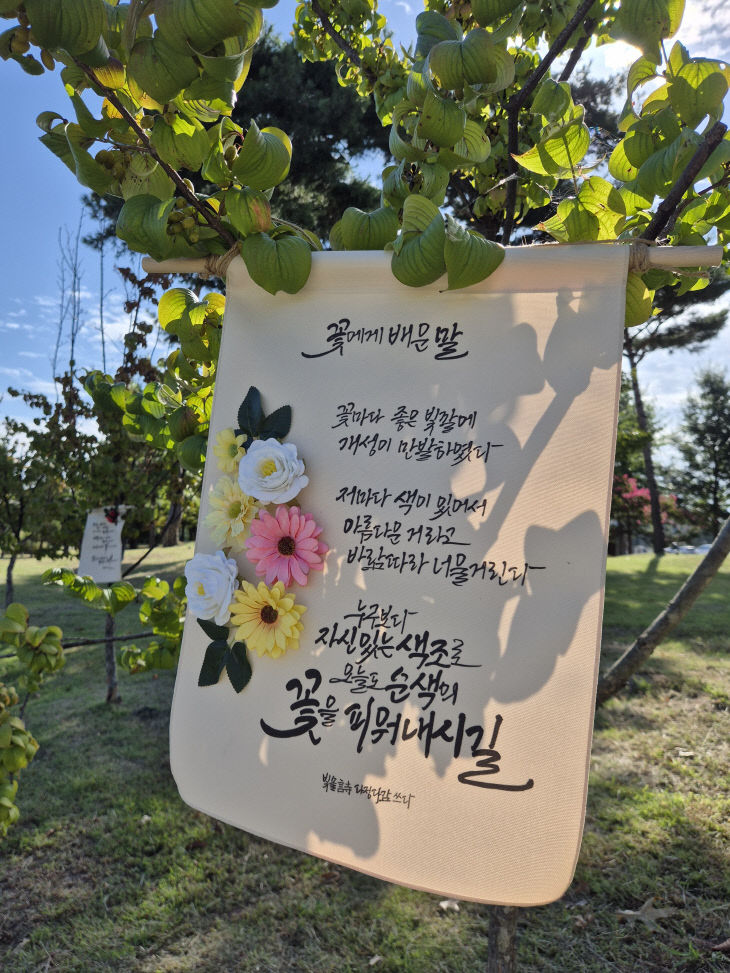 꽃에게 배운 말
꽃마다 좋은 빛깔에
개성이 만발하였다
저마다 색이 있어서
아름다운 거라고
바람따라 너울거린다
누구보다
자신있는 색조로
오늘도 순색의
꽃을 피워내시길
다정다감 쓰다